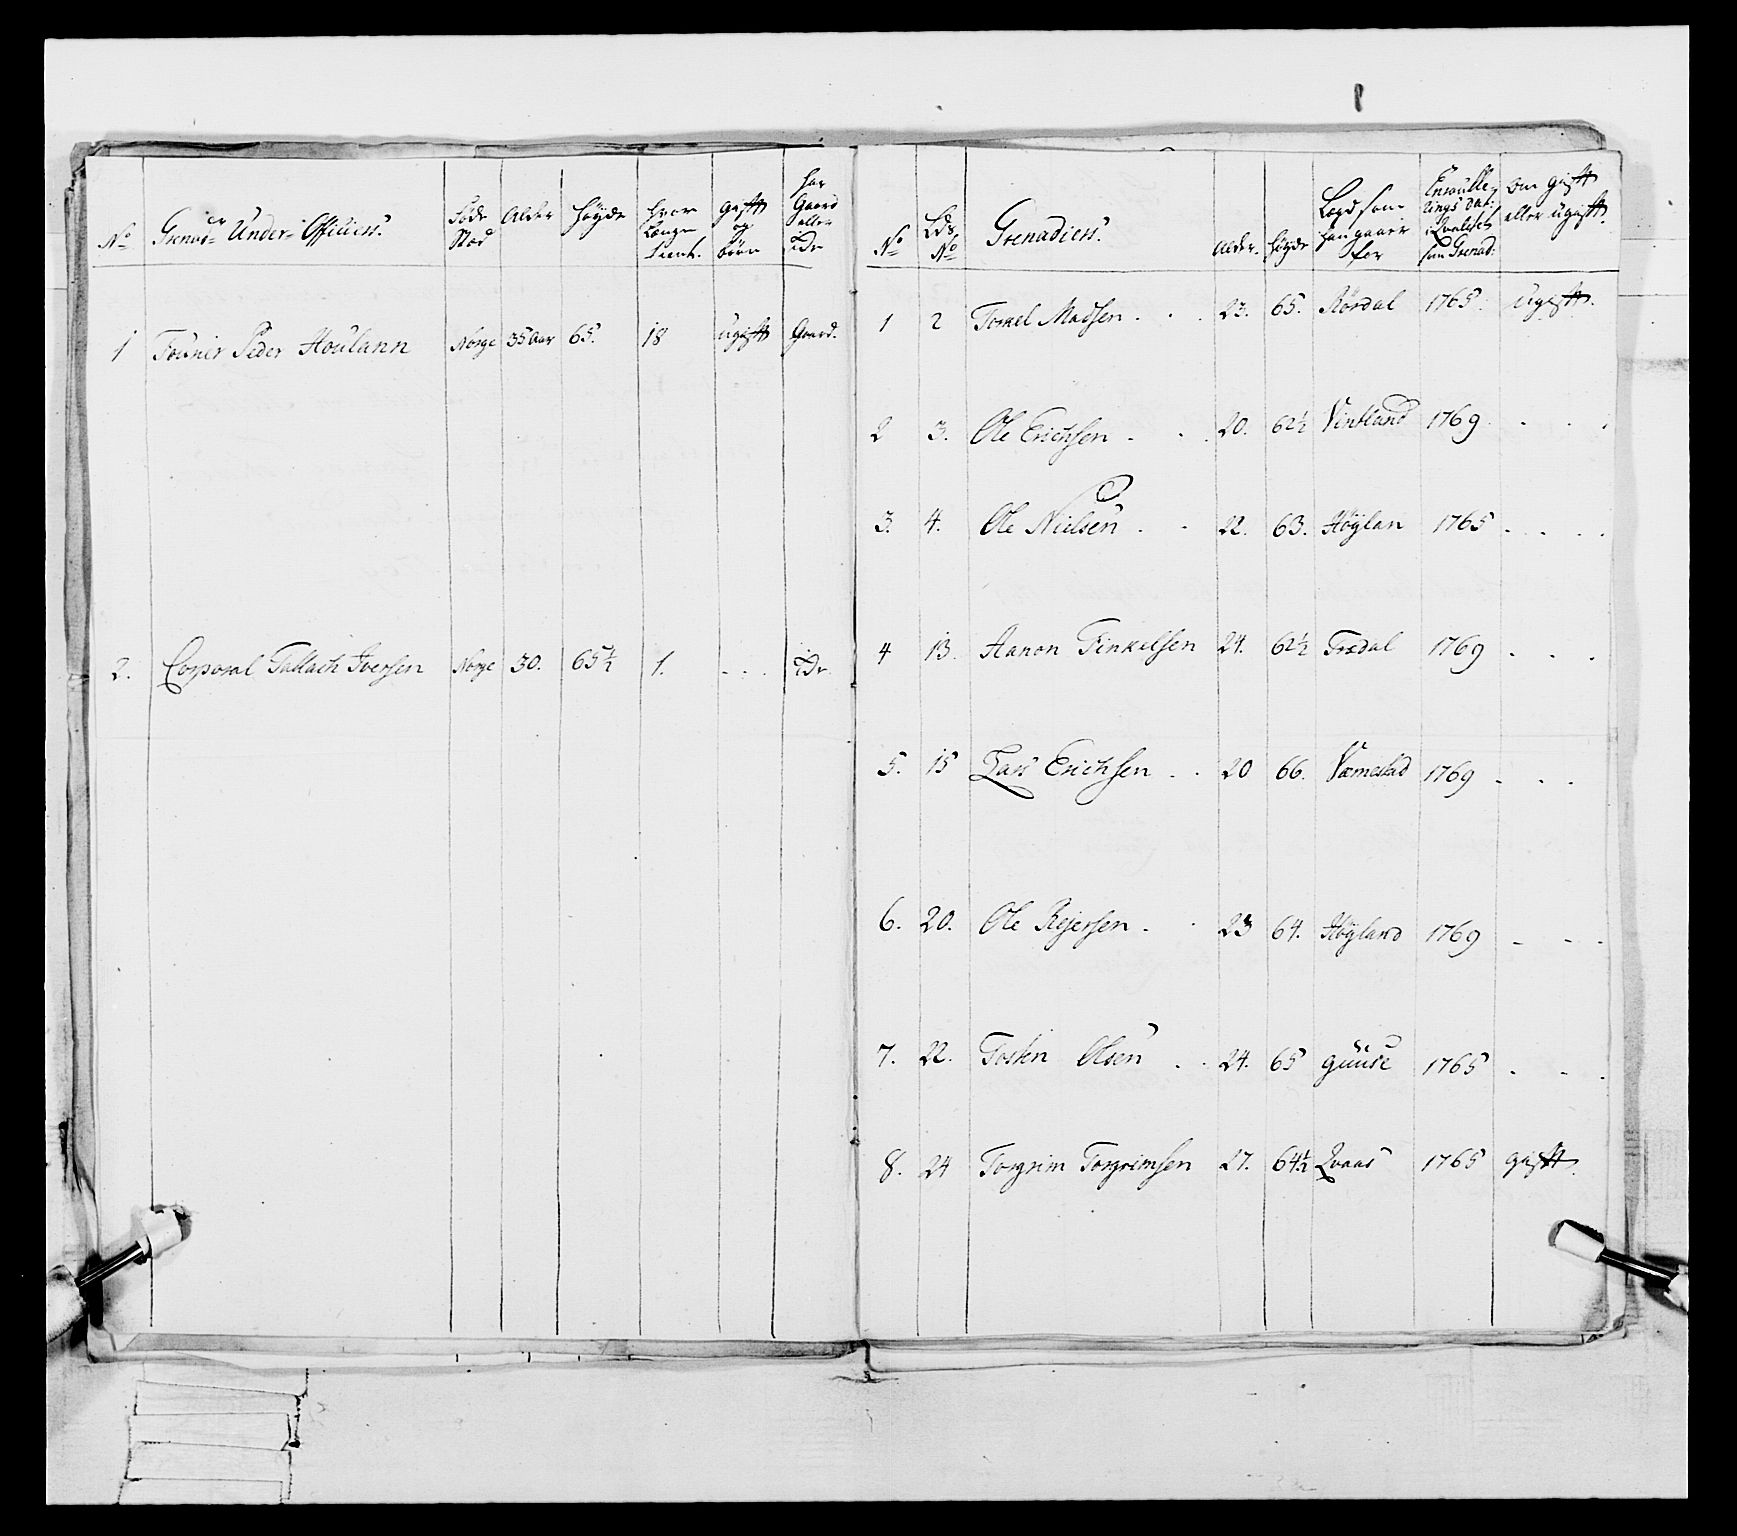 No Grenad= Under=Officiers. Føde Stæd Alder Høyde Hvor Længe tient. gifft og børn har Gaard eller Ide
1 Fourier Peder Houlann Norge 35 Aar 65. 18 ugifft Gaard.
2. Corporal Tallach Iversen Norge 30. 65½ 1. - - - Ide
No Lds No Grenadiers. Alder. Høyde Lægd som han gaaer for Enroullerings som Grenad: om gifft eller ugifft
1 2 Torkel Madsen . . . 23. 65. Rørdal 1765. ugifft.
2 3. Ole Erichsen . . . 20. 62½ Vintland 1769. . . .
3. 4. Ole Nielsen . . 22. 63. Høylan 1765 . . . .
4 13. Aanon Finkelsen 24. 62½ Trædal 1769 . . .
5. 15 Lars Erichsen . . 20 66. Væmestad 1769 . . .
6. 20. Ole Rejersen . . 23 64. Høyland 1769 - - .
7. 22. Tosten Olsen . . 24. 65 guuse 1765 . - .
8. 24 Torgrim Torgrimsen 27. 64½ Qvaas 1765 gifft.